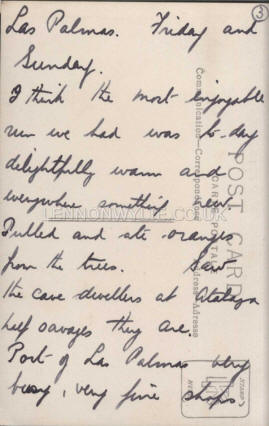 3
Las Palmas. Friday and
Sunday.
I think the most enjoyable
run we had was to-day
delightfully warm and
everywhere something new.
Pulled and ate oranges
from the trees. Saw
the cave dwellers at Atalaya
half savages they are.
Port of Las Palmas very
busy, very fine shops
POST CARD
CARTE POSTALE
Communication-Correspondence
Address-Adresse
LENNONWYLIE.CO.UK